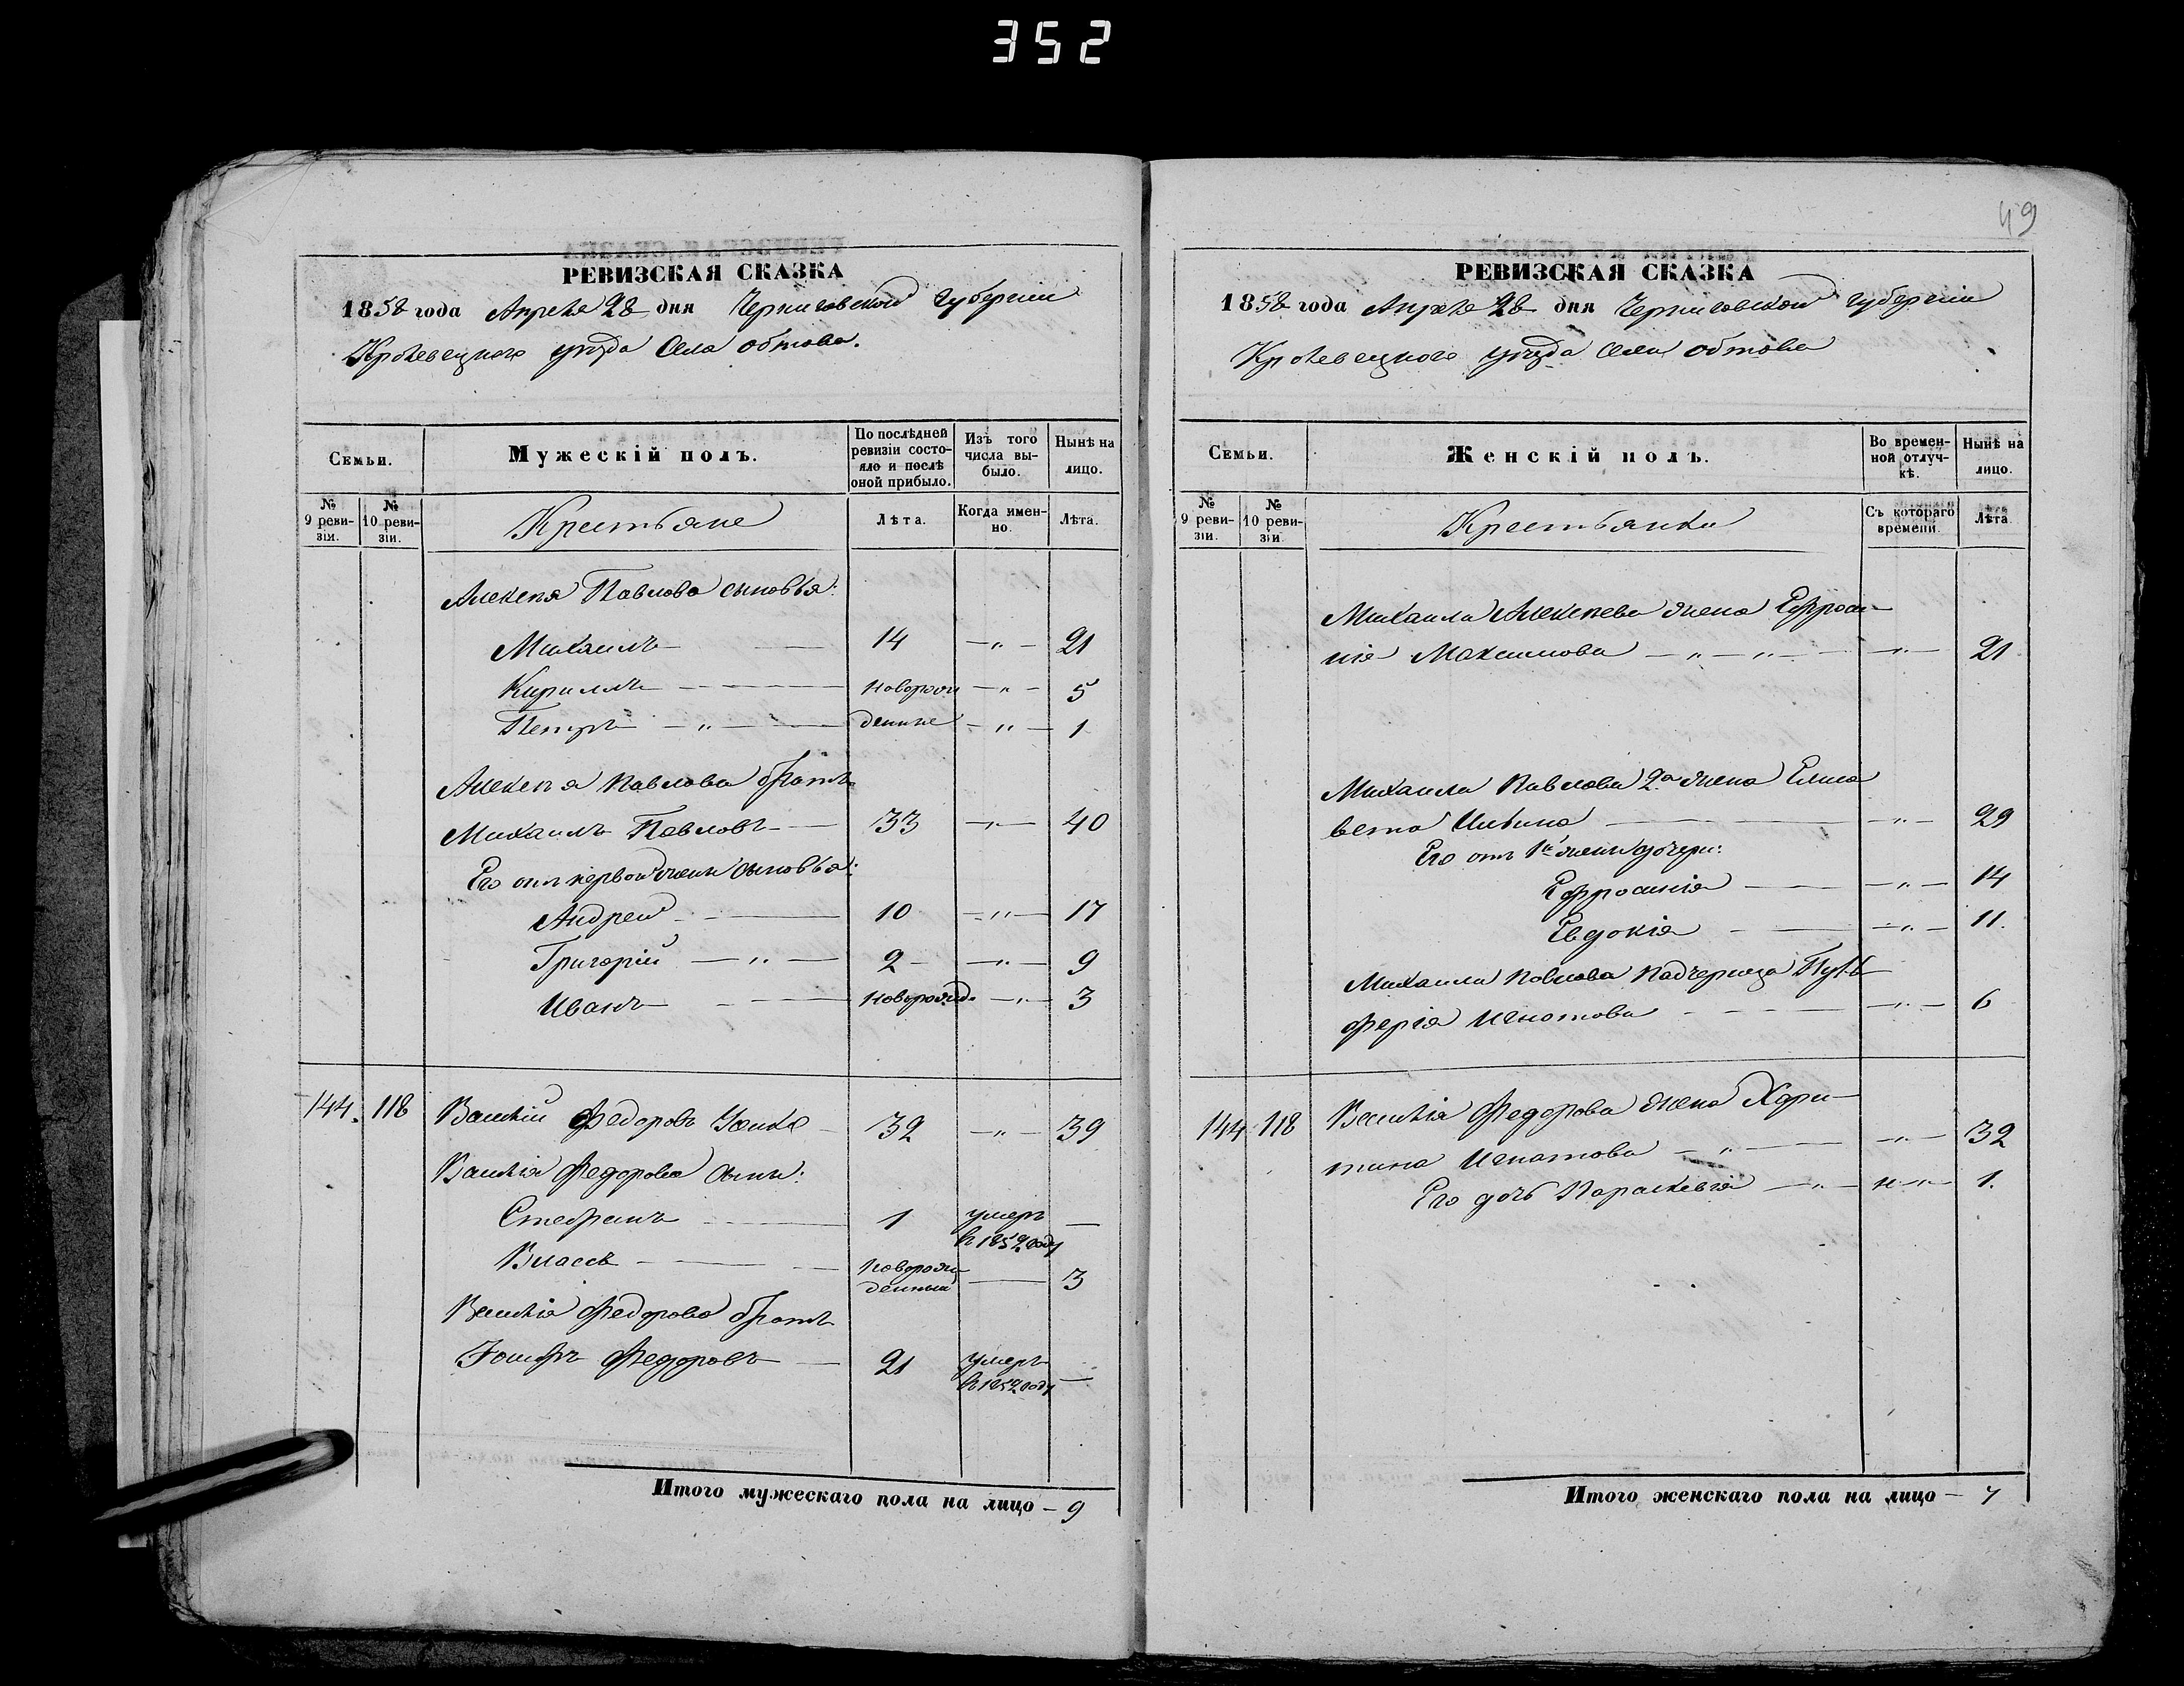 352
49
РЕВИЗСКАЯ СКАЗКА
1858 года Апреля 28 дня Черниговской губерніи
Кролевецкого уѣзда Села обтова.
Семьи.
Мужескій полъ.
По послѣдней ревизіи состояло и послѣ оной прибыло.
Изъ того числа выбыло.
Нынѣ на лицо.
№ 9 ревизіи.
№ 10 ревизіи.
Крестьяне
Лѣта.
Когда именно.
Лѣта.
Алексея Павлова сыновья:
Михаилъ — 14 — „ — 21
Кириллъ — новорож — „ — 5
Петръ — „ — денные — „ — 1
Алексея Павлова братъ
Михаилъ Павловъ — 33 — „ — 40
Его отъ первой жены сыновья:
Андрей — 10 — „ — 17
Григорій — „ — 2 — „ — 9
Иванъ — новорожд. — „ — 3
144. 118 Василій Федоровъ — 32 — „ — 39
Василія Федорова сыны:
Стефанъ — 1 умеръ в 1852 году —
Власъ — новорожденный — 3
Василія Федорова братъ
Іосифъ Федоровъ — 21 умеръ в 1852 году —
Итого мужескаго пола на лицо — 9
РЕВИЗСКАЯ СКАЗКА
1858 года Апреля 28 дня Черниговской губерніи
Кролевецкого уѣзда Села обтова
Семьи.
Женскій полъ.
Во временной отлучкѣ.
Нынѣ на лицо.
№ 9 ревизіи.
№ 10 ревизіи.
Крестьянки
Съ котораго времени.
Лѣта.
Михаила Алексеева жена Ефроси-
нія Максимова — „ — „ — „ — 21
Михаила Павлова 2я жена Елиса
вета — „ — 29
Его отъ 1й жены дочери:
Ефросинія — „ — 14
Евдокія — „ — 11.
Михаила Павлова падчерица Пуль
ферія Игнатова — „ — 6
144. 118 Василія Федорова жена Хари-
тина Игнатова — „ — „ — 32
Его дочь Параскевія — „ — „ — 1.
Итого женскаго пола на лицо — 7